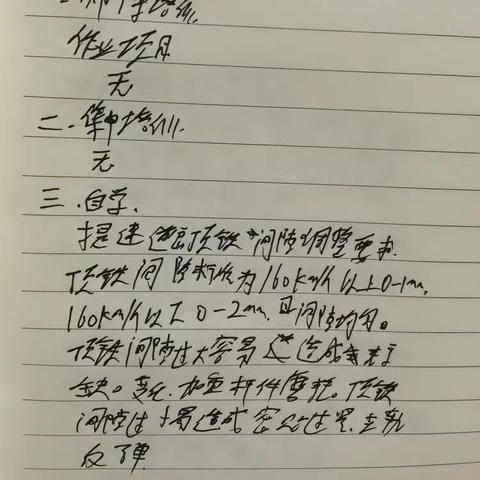 作业项目
无
二.集中培训.
无
三.自学.
提速道岔顶铁间隙调整要求.
顶铁间隙标准为160km/h以上0-1mm,
160km/h以下0-2mm,且间隙均匀。
顶铁间隙过大容易造成
缺。变化.加重杆件磨耗。顶铁
间隙过小易造成密贴过紧,
反弹